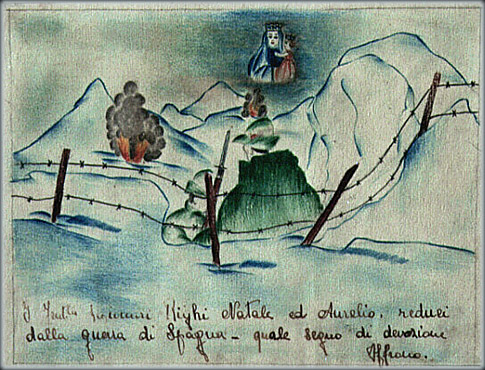 Righi Natale ed Aurelio, reduci
dalla guerra di Spagna - quale segno di devozione
Offrono.